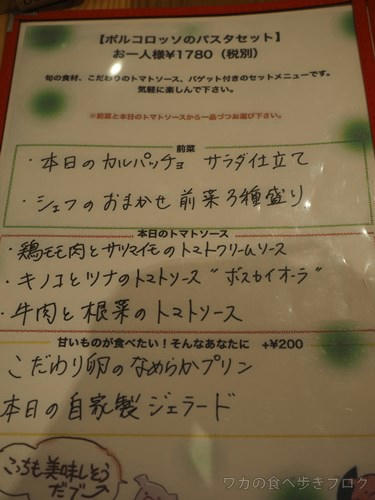 【ポルコロッソのパスタセット】
お一人様¥1780(税別)
旬の食材、こだわりのトマトソース、バゲット付きのセットメニューです。
気軽に楽しんで下さい。
※前菜と本日のトマトソースから一品づつお選び下さい。
前菜
・本日のカルパッチョ サラダ仕立て
・シェフのおまかせ前菜3種盛り
本日のトマトソース
・鶏モモ肉とサツマイモのトマトクリームソース
・キノコとツナのトマトソース"ボスカイオーラ"
・牛肉と根菜のトマトソース
甘いものが食べたい!そんなあなたに +¥200
こだわり卵のなめらかプリン
本日の自家製ジェラード
こっちも美味しそう
だブー
ワカの食べ歩きブログ